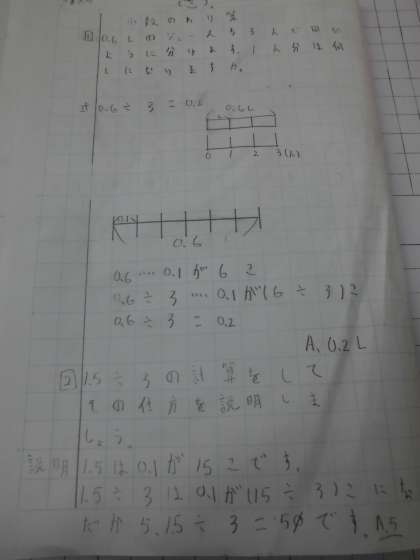 小数のわり算
1 0.6Lのジュースを3人で同じ
ように分けます。1人分は何
Lになりますか。
式 0.6÷3=0.2
0.6L
0 1 2 3(人)
0.1
0.6
0.6‥‥0.1が6こ
0.6÷3‥‥0.1が(6÷3)こ
0.6÷3=0.2
A、0.2L
2 1.5÷3の計算をして
その仕方を説明しま
しょう。
説明 1.5は0.1が15こです。
1.5÷3は0.1が(15÷3)こに
だから、15÷3=5です。A.5